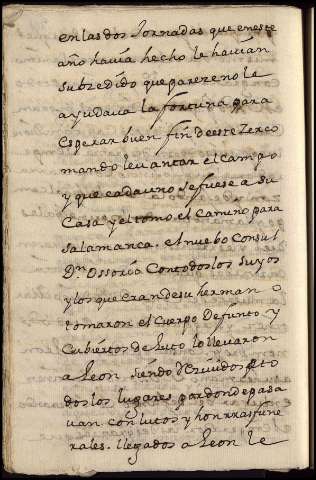 en las dos Jornadas que en este
año havia hecho le havian
subzedido que pareze no le
ayudava la fortuna para
esperar buen fin de este Zerco
mando levantar el campo
y que cada uno se fuese a su
Casa y el tomo el camino para
Salamanca. el nuebo Consul
Dn Ossorio Con todos los suyos
y los que eran de su hermano
tomaron el Cuerpo Defunto y
Cubiertos de luto lo llevaron
a Leon siendo
dos los lugares por donde pasa
van con lutos y honrras fune
rales. llegados a Leon le